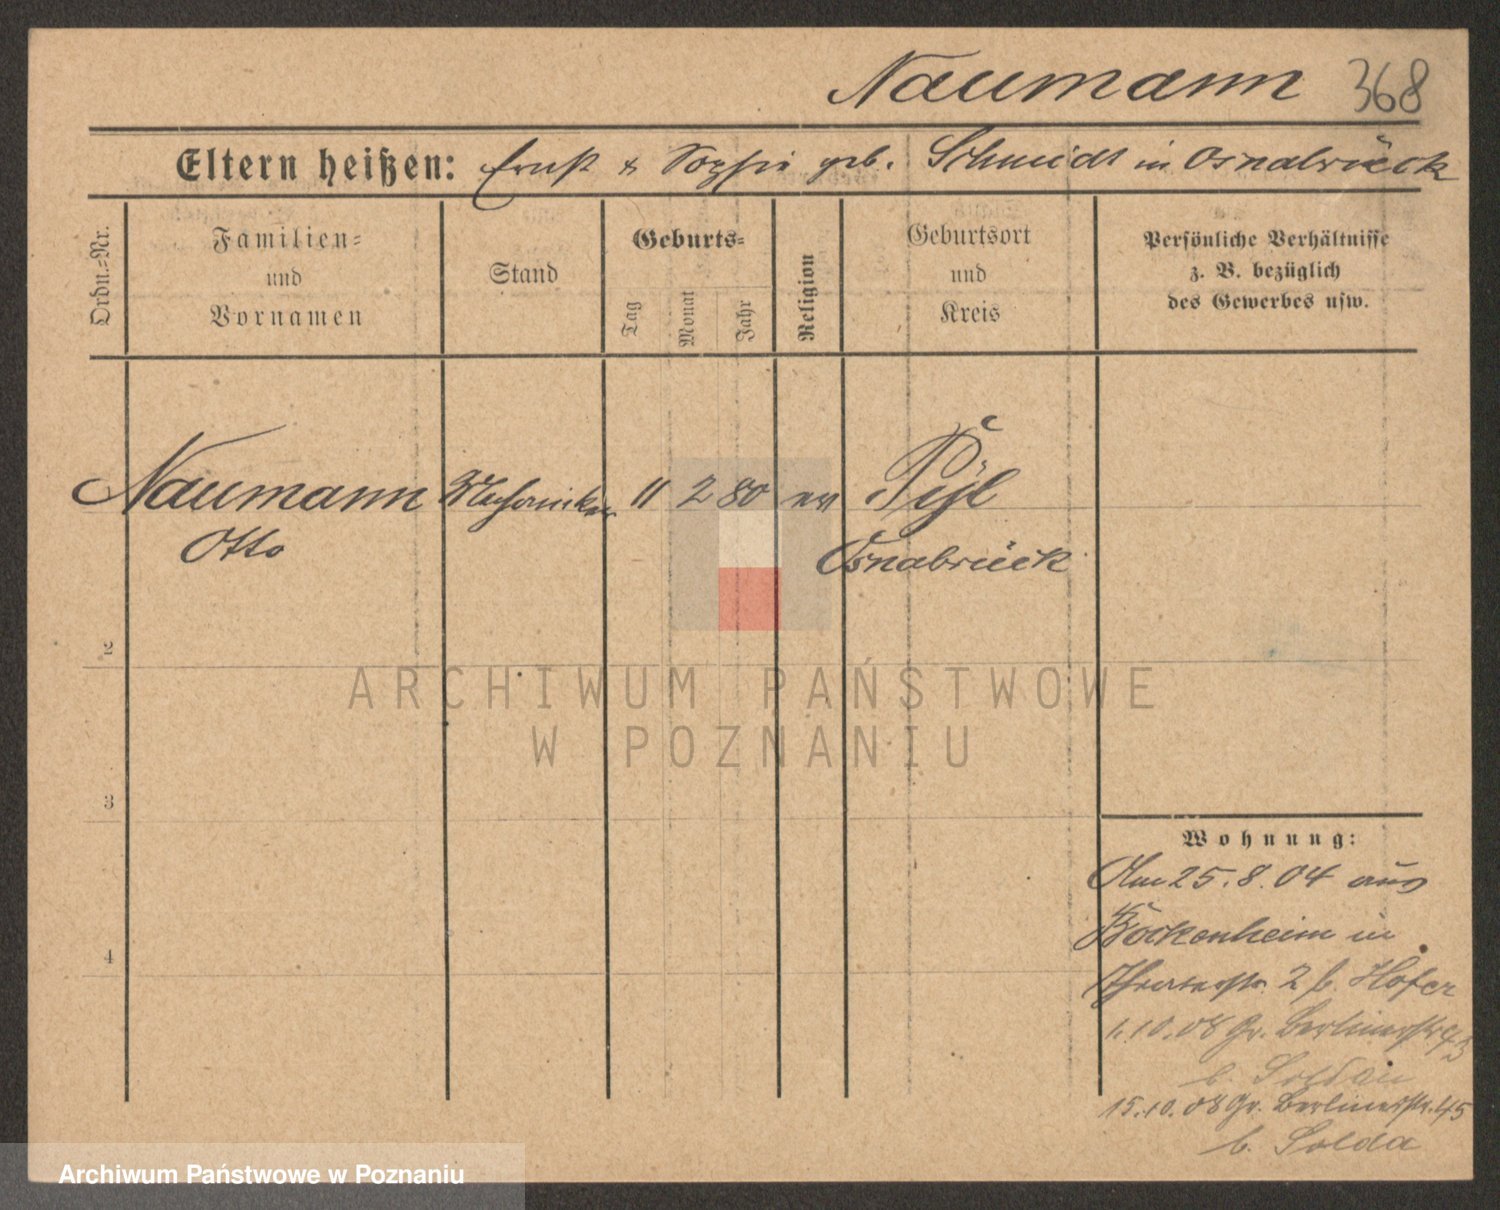 Naumann 368
Eltern heißen: Ernst & Sophie geb. Schmidt in Osnabrück
Ordn.-Nr.
Familien-
und
Vornamen
Stand
Geburts-
Tag
Monat
Jahr
Religion
Geburtsort
und
Kreis
Persönliche Verhältnisse
z. B. bezüglich
des Gewerbes usw.
Naumann Mechaniker 11 2 80 ev
Otto Osnabrück
2
ARCHIWUM PAŃSTWOWE
W POZNANIU
3
Wohnung:
Am 25.8.04 aus
Bockenheim in
2 b. Hofer
1.10.08 Gr. Berlinerstr
b. Soldan
4
15.10.08 Gr. Berlinerstr. 45
b. Solda
Archiwum Państwowe w Poznaniu